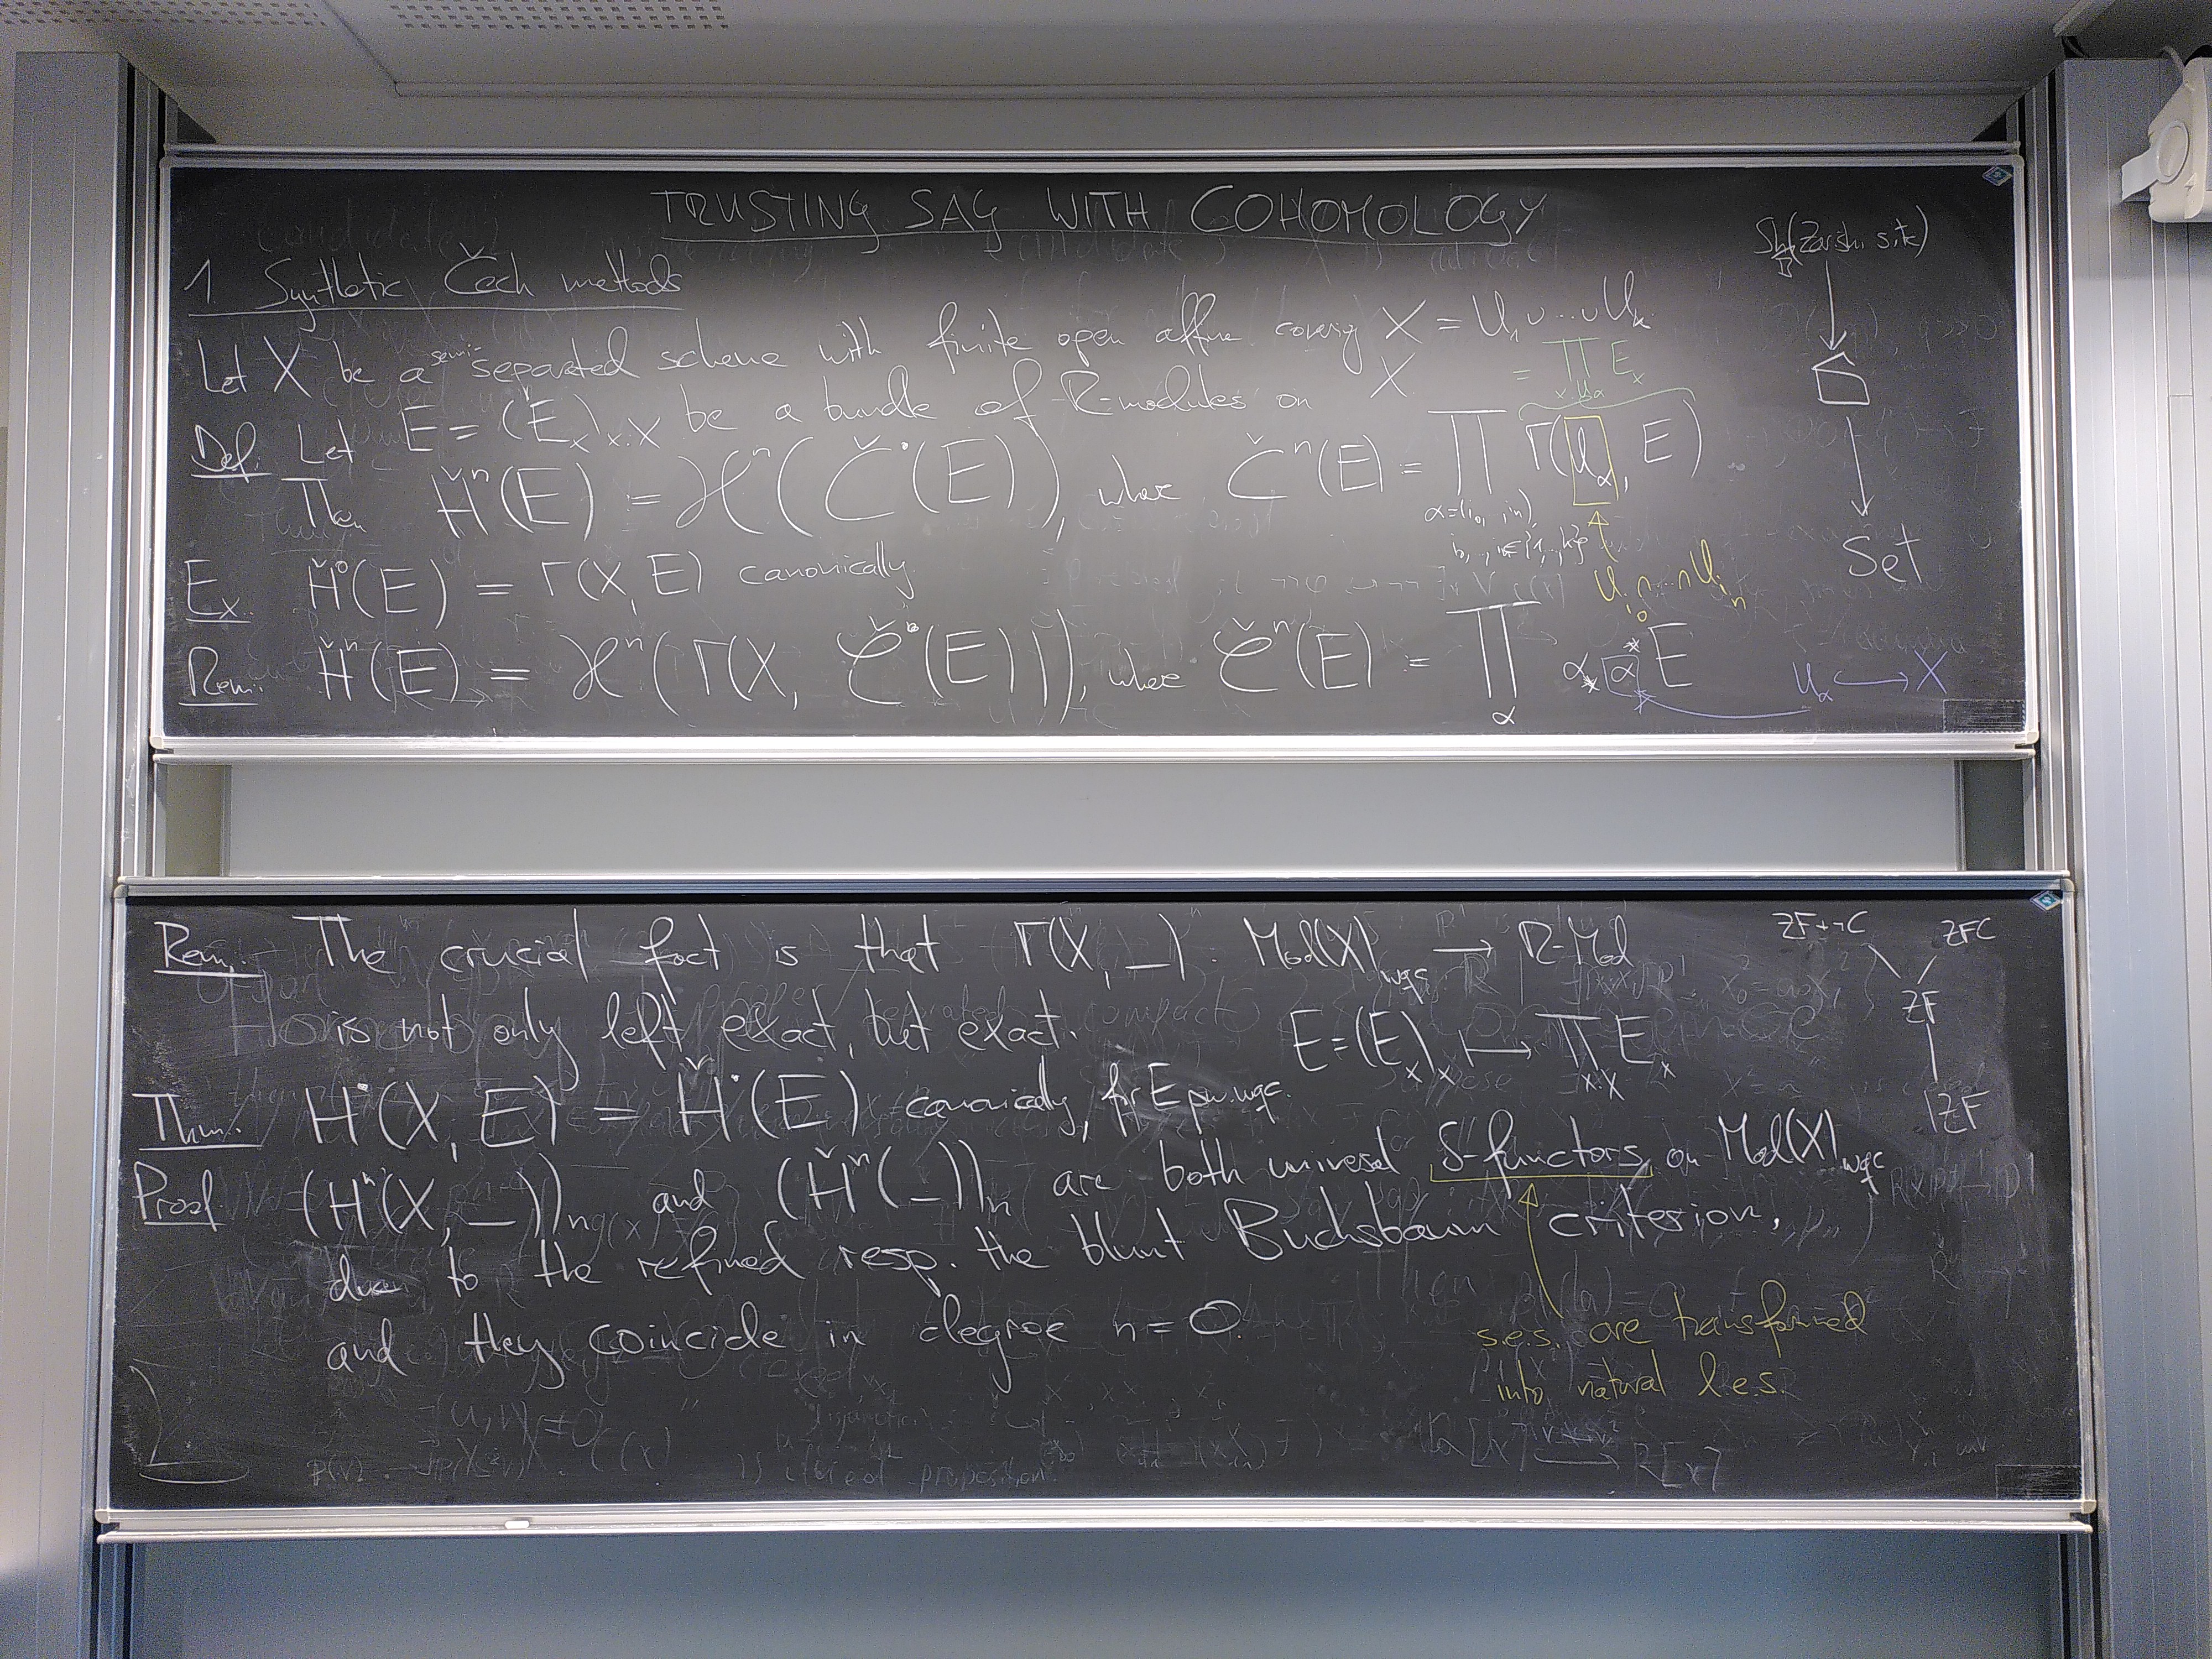 TRUSTING SAG WITH COHOMOLOGY
1. Synthetic Čech methods
Let X be a semi-separated scheme with finite open affine covering X = U₁ ∪ … ∪ Uₖ
Def. Let E = (Eₓ)ₓ:X be a bundle of R-modules on X
Then Ȟⁿ(E) = ℋⁿ(Č•(E)), where Čⁿ(E) = ∏ Γ(U_α, E)
α=(i₀,…,iₙ)
i₀,…,iₙ∈{1,…,k}
= ∏ Eₓ
x:U_α
U_i₀ ∩ … ∩ U_iₙ
Ex. Ȟ⁰(E) = Γ(X, E) canonically.
Rem. Ȟⁿ(E) = ℋⁿ(Γ(X, 𝒞̌•(E))), where 𝒞̌ⁿ(E) = ∏_α α_* α^* E
U_α ↪ X
Sh(Zariski site)
↓
↓
Set
Rem. The crucial fact is that Γ(X, _) : Mod(X)_wqc → R-Mod
is not only left exact, but exact. E = (Eₓ)ₓ ↦ ∏_x:X Eₓ
Thm. H•(X, E) = Ȟ•(E) canonically, for E wqc.
Proof. (Hⁿ(X, _))ₙ and (Ȟⁿ(_))ₙ are both universal δ-functors on Mod(X)_wqc
due to the refined resp. the blunt Buchsbaum criterion,
and they coincide in degree n = 0.
s.e.s. are transformed
into natural l.e.s.
ZF+¬C ZFC
ZF
IZF